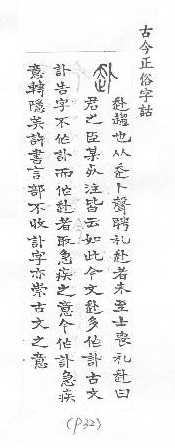 古今正俗字詁
赴
赴趨也从走卜聲聘礼赴者未至士喪礼赴曰
君之臣某死注皆云如此今文赴多作訃古文
訃告字不作訃而作赴者取急疾之意今作訃急疾
意轉隐矣許書言部不收訃字亦崇古文之意
(P32)